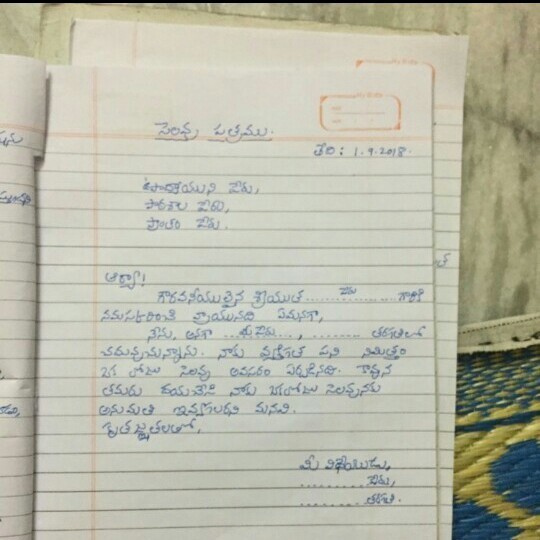 సెలవు పత్రము.
తేది : 1.9.2018.
ఉపాధ్యాయుని పేరు,
పాఠశాల పేరు,
ప్రాంతం పేరు.
ఆర్యా!
గౌరవనీయులైన శ్రీయుత ........పేరు........ గారికి
నమస్కరించి వ్రాయునది ఏమనగా,
నేను, అనగా ...మీ పేరు..., ......... తరగతిలో
చదువుచున్నాను. నాకు వ్యక్తిగత పని నిమిత్తం
ఒక రోజు సెలవు అవసరం ఏర్పడినది. కావున
తమరు దయచేసి నాకు ఒకరోజు సెలవునకు
అనుమతి ఇవ్వగలరని మనవి.
కృతజ్ఞతలతో,
మీ విధేయుడు,
.......... పేరు,
.......... తరగతి.